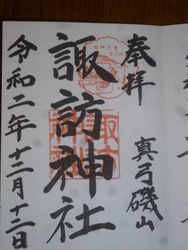 奉拝
真弓磯山
諏訪神社
令和二年十二月十二日